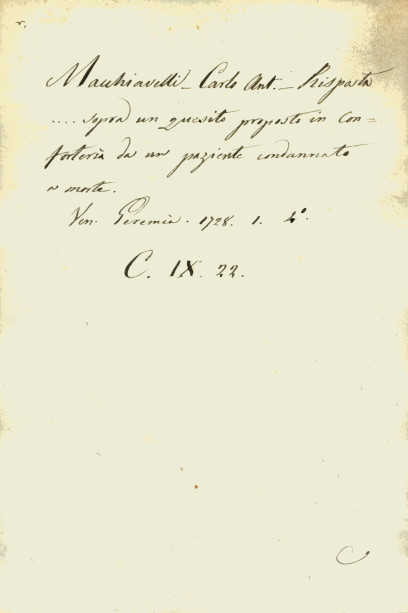 r.
Macchiavelli – Carlo Ant. – Risposta
.... sopra un quesito proposto in con=
forteria da un paziente condannato
a morte.
Ven. Geremia. 1728. 1. 4°.
C. IX. 22.